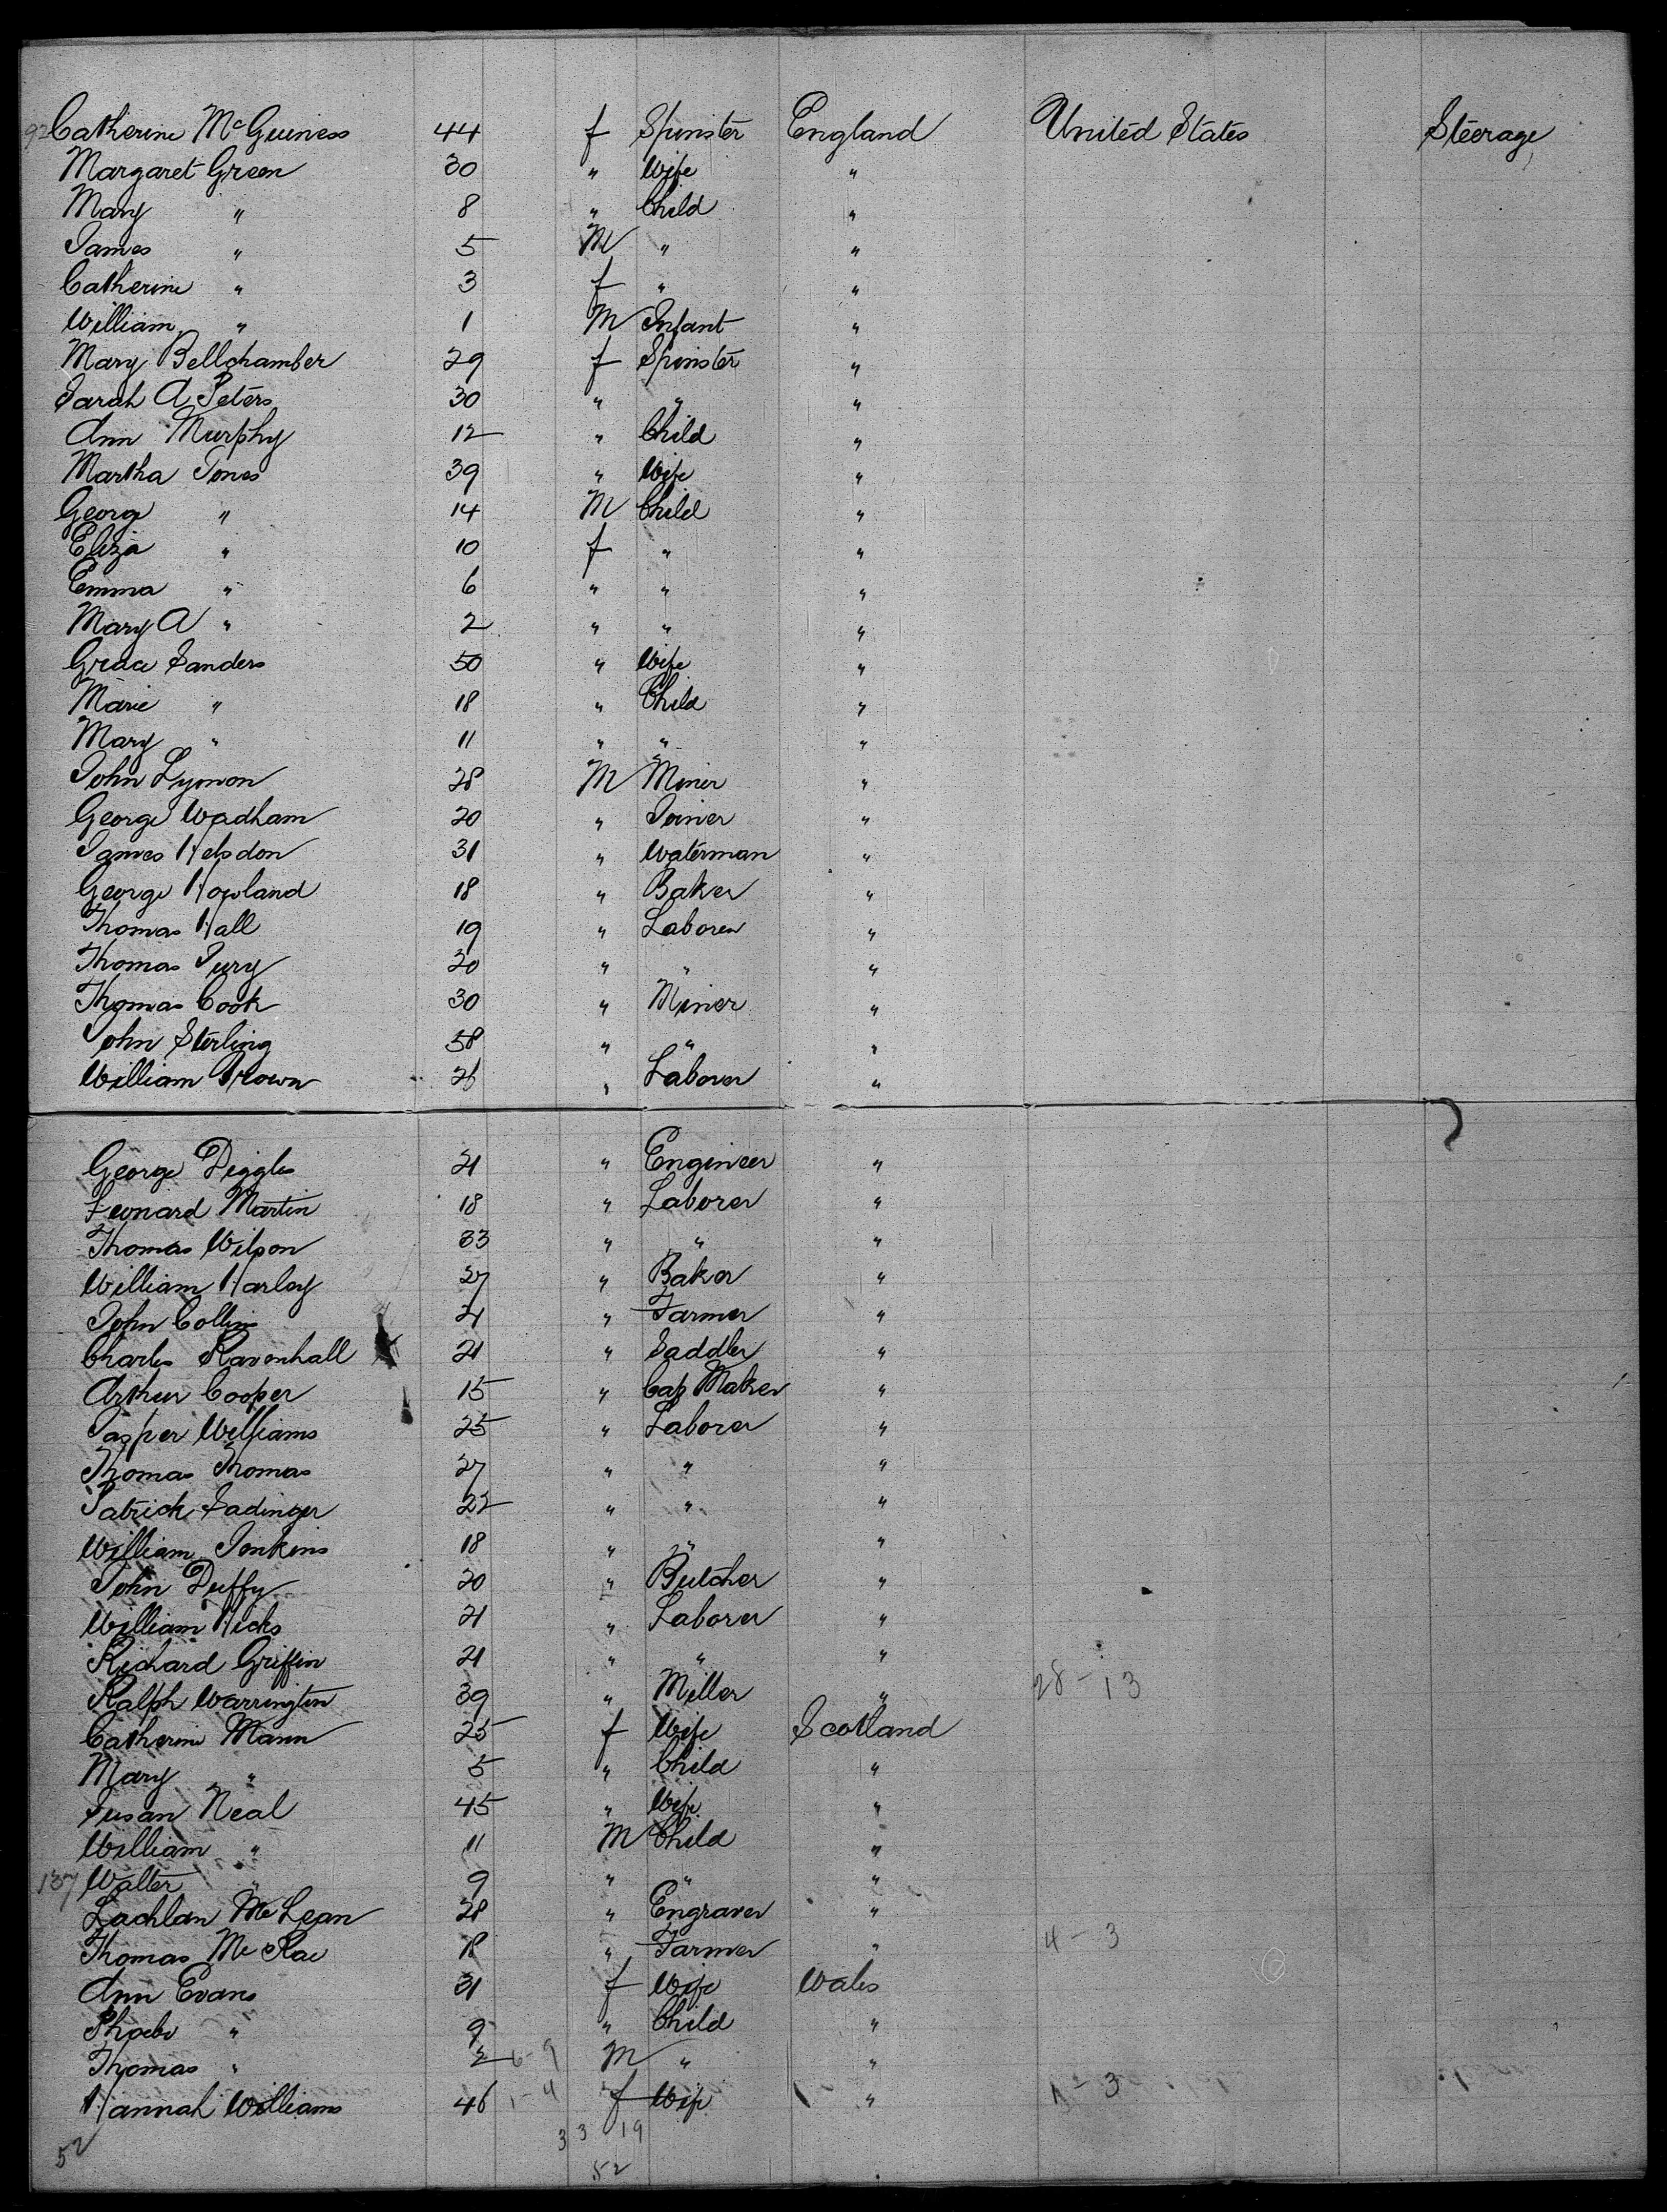 92 Catherine McGuiness 44 f Spinster England United States Steerage
Margaret Green 30 " Wife "
Mary " 8 " Child "
James " 5 M " "
Catherine " 3 f " "
William " 1 M Infant "
Mary Bellchamber 29 f Spinster "
Sarah A Peters 30 " " "
Ann Murphy 12 " Child "
Martha Jones 39 " Wife "
George " 14 M Child "
Eliza " 10 f " "
Emma " 6 " " "
Mary A " 2 " " "
Grace Sanders 50 " Wife "
Marie " 18 " Child "
Mary " 11 " " "
John Lymon 28 M Miner "
George Wadham 20 " Joiner "
James Helsdon 31 " Waterman "
George Howland 18 " Baker "
Thomas Hall 19 " Laborer "
Thomas Jury 20 " " "
Thomas Cook 30 " Miner "
John Sterling 58 " " "
William Brown 26 " Laborer "
George Diggles 21 " Engineer "
Leonard Martin 18 " Laborer "
Thomas Wilson 33 " " "
William Harley 27 " Baker "
John Collins 21 " Farmer "
Charles Ravenhall 21 " Saddler "
Arthur Cooper 15 " Cap Maker "
Jasper Williams 25 " Laborer "
Thomas Thomas 27 " " "
Patrick Sadinger 22 " " "
William Jenkins 18 " " "
John Duffy 20 " Butcher "
William Hicks 21 " Laborer "
Richard Griffin 21 " " "
Ralph Warrington 39 " Miller " 28-13
Catherine Mann 25 f Wife Scotland
Mary " 5 " Child "
Susan Neal 45 " Wife "
William " 11 M Child "
137 Walter " 9 " " "
Lachlan McLean 28 " Engraver "
Thomas McRae 18 " Farmer " 4-3
Ann Evans 31 f Wife Wales
Phoebe " 9 " Child "
Thomas " 2 6-9 M " "
Hannah Williams 46 1-4 f Wife " 1-3
33 19
52 52